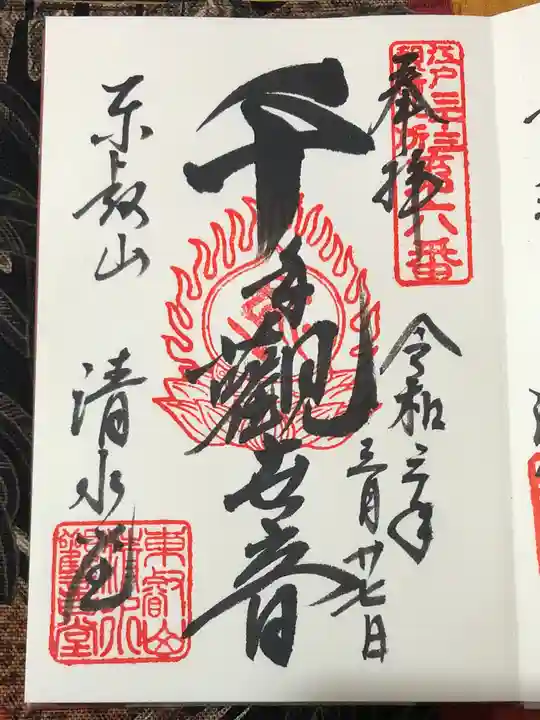 奉拝
江戸三十三所第六番
令和三年
三月廿七日
千手観世音
東叡山 清水堂
東叡山
清水
観音堂